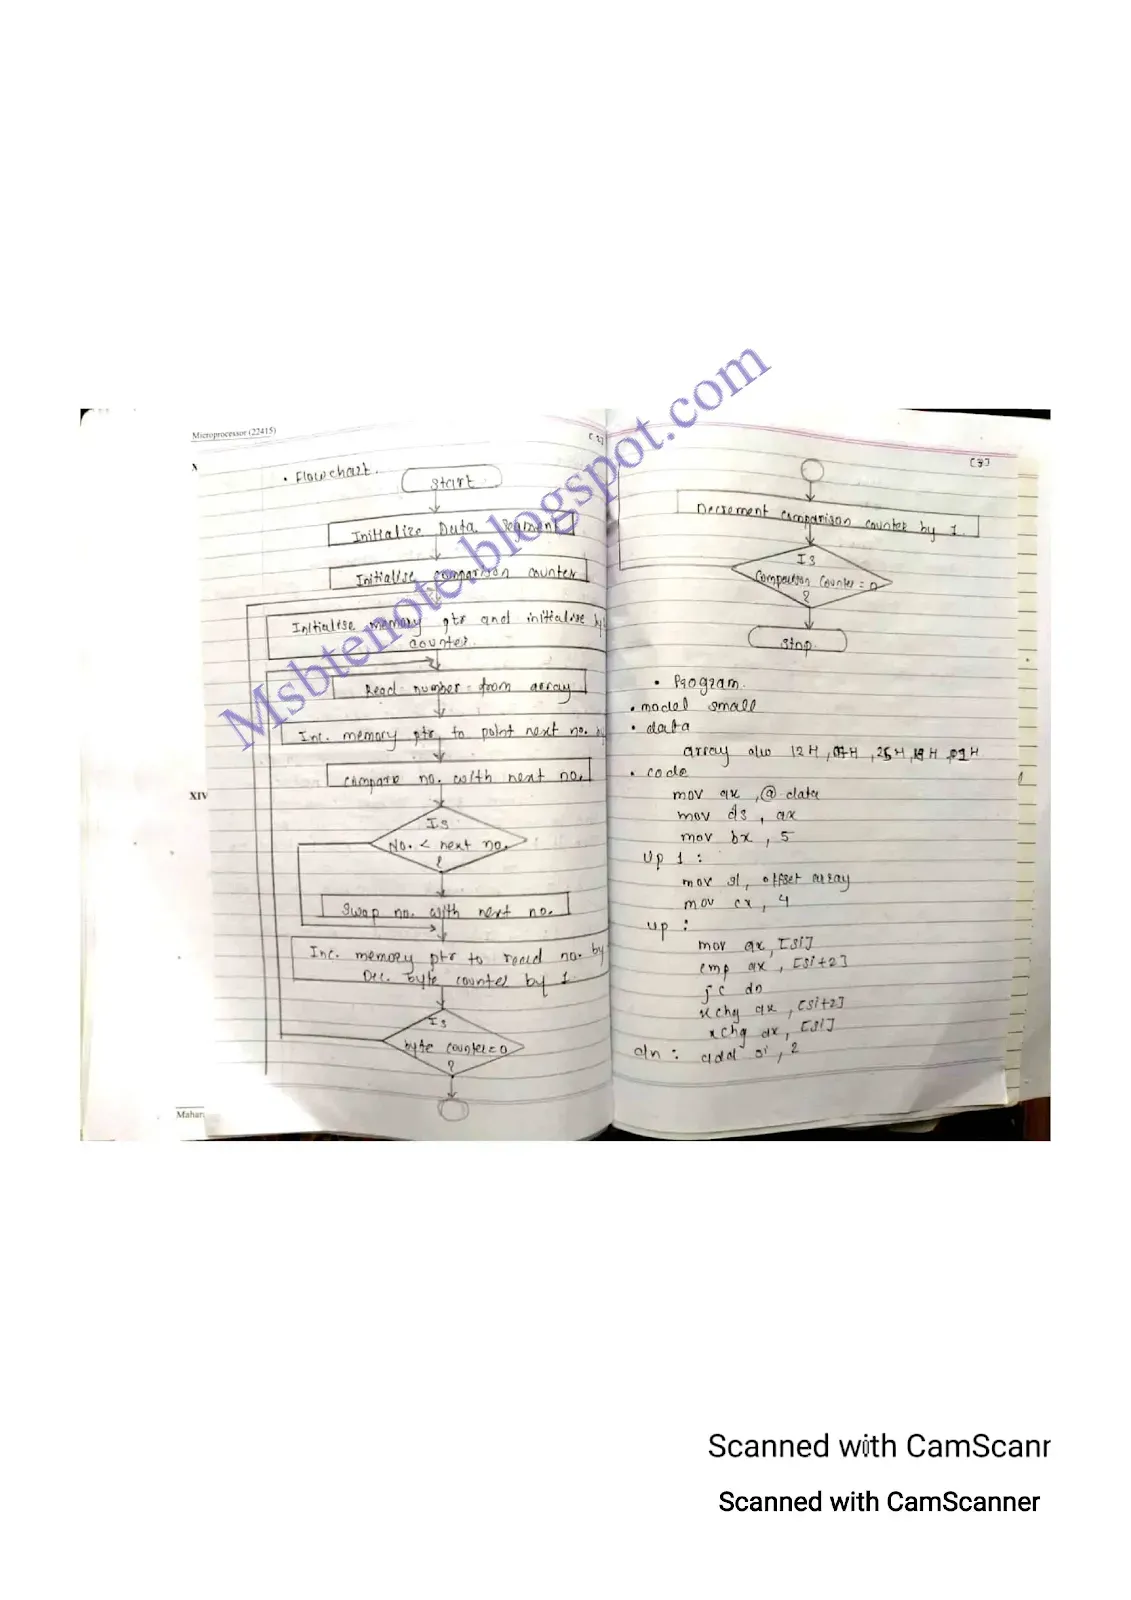 Microprocessor (22415)
[2]
• Flowchart.
Start
Initialize Data Segment
Initialise comparison counter
Initialise memory ptr and initialise by
counter.
Read number from array
Inc. memory ptr to point next no. by
Compare no. with next no.
Is
No. < next no.
?
Swap no. with next no.
Inc. memory ptr to read no. by
Dec. byte counter by 1.
Is
byte counter = 0
?
XIV
Mahar
[3]
Decrement comparison counter by 1.
Is
Comparison Counter = 0
?
Stop
• Program.
• model small
• data
array dw 12H, 25H
• code
mov ax, @ data
mov ds, ax
mov bx, 5
Up 1 :
mov si, offset array
mov cx, 4
up :
mov ax, [si]
cmp ax, [si+2]
jc dn
xchg ax, [si+2]
xchg ax, [si]
dn : add si, 2
Msbtenote.blogspot.com
Scanned with CamScanr
Scanned with CamScanner